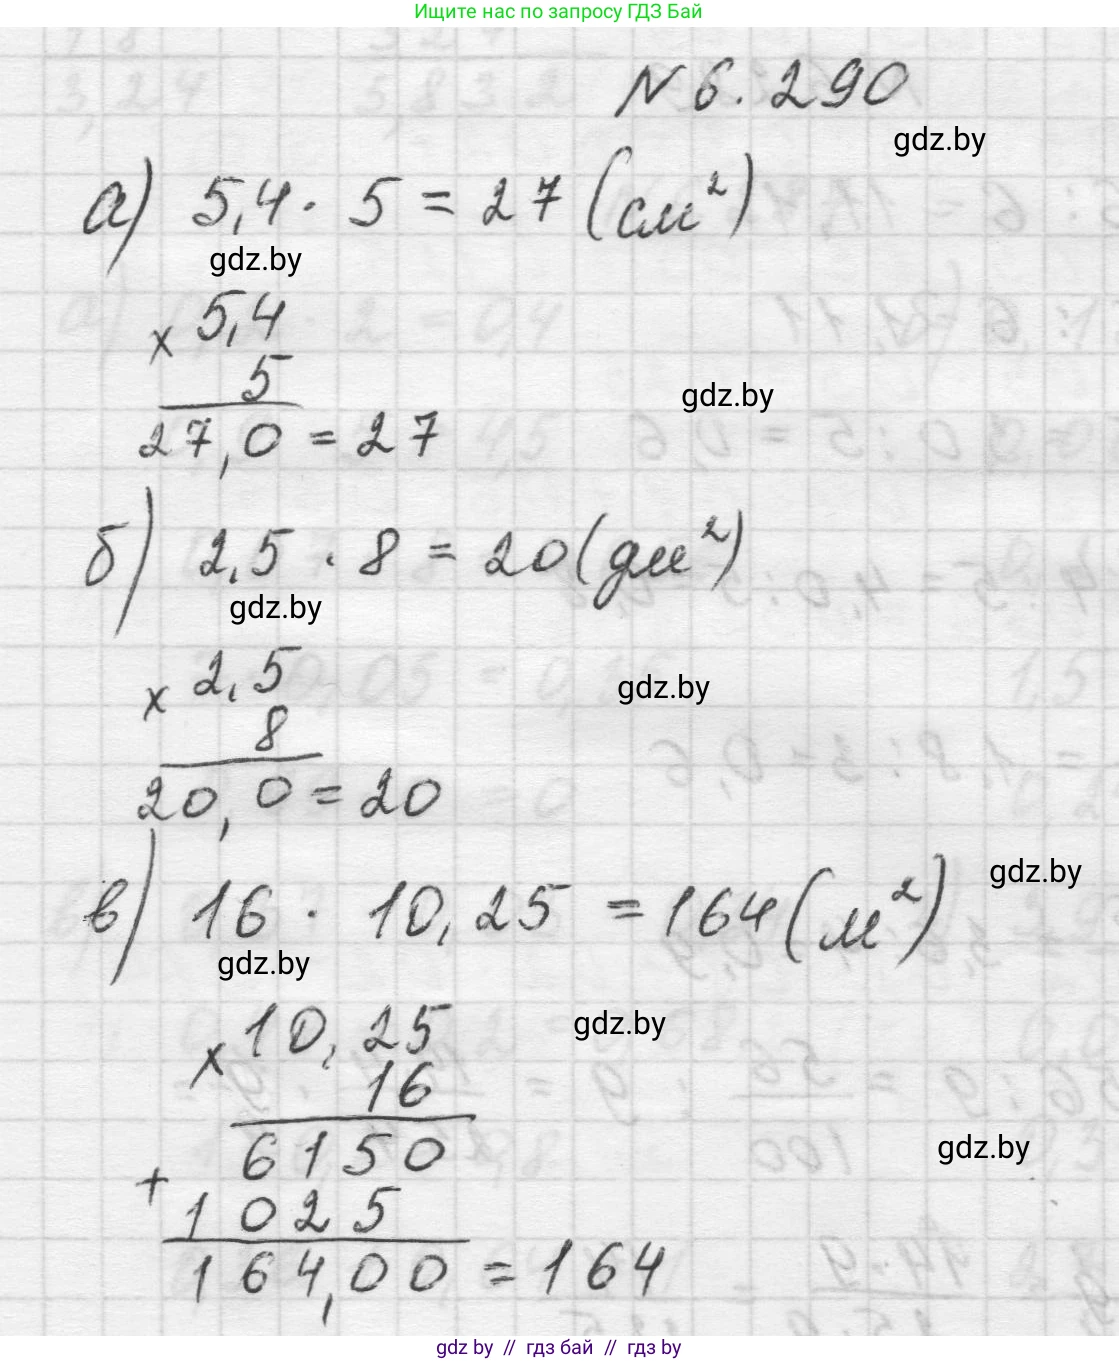 Ищите нас по запросу ГДЗ Бай
№ 6.290
gdz.by
а) 5,4 · 5 = 27 (см²)
gdz.by
× 5,4
5
gdz.by
27,0 = 27
б) 2,5 · 8 = 20 (дм²)
gdz.by
× 2,5
gdz.by
8
20,0 = 20
gdz.by
в) 16 · 10,25 = 164 (м²)
gdz.by
× 10,25
gdz.by
16
6150
gdz.by
+ 1025
164,00 = 164
gdz.by // гдз бай // гдз by